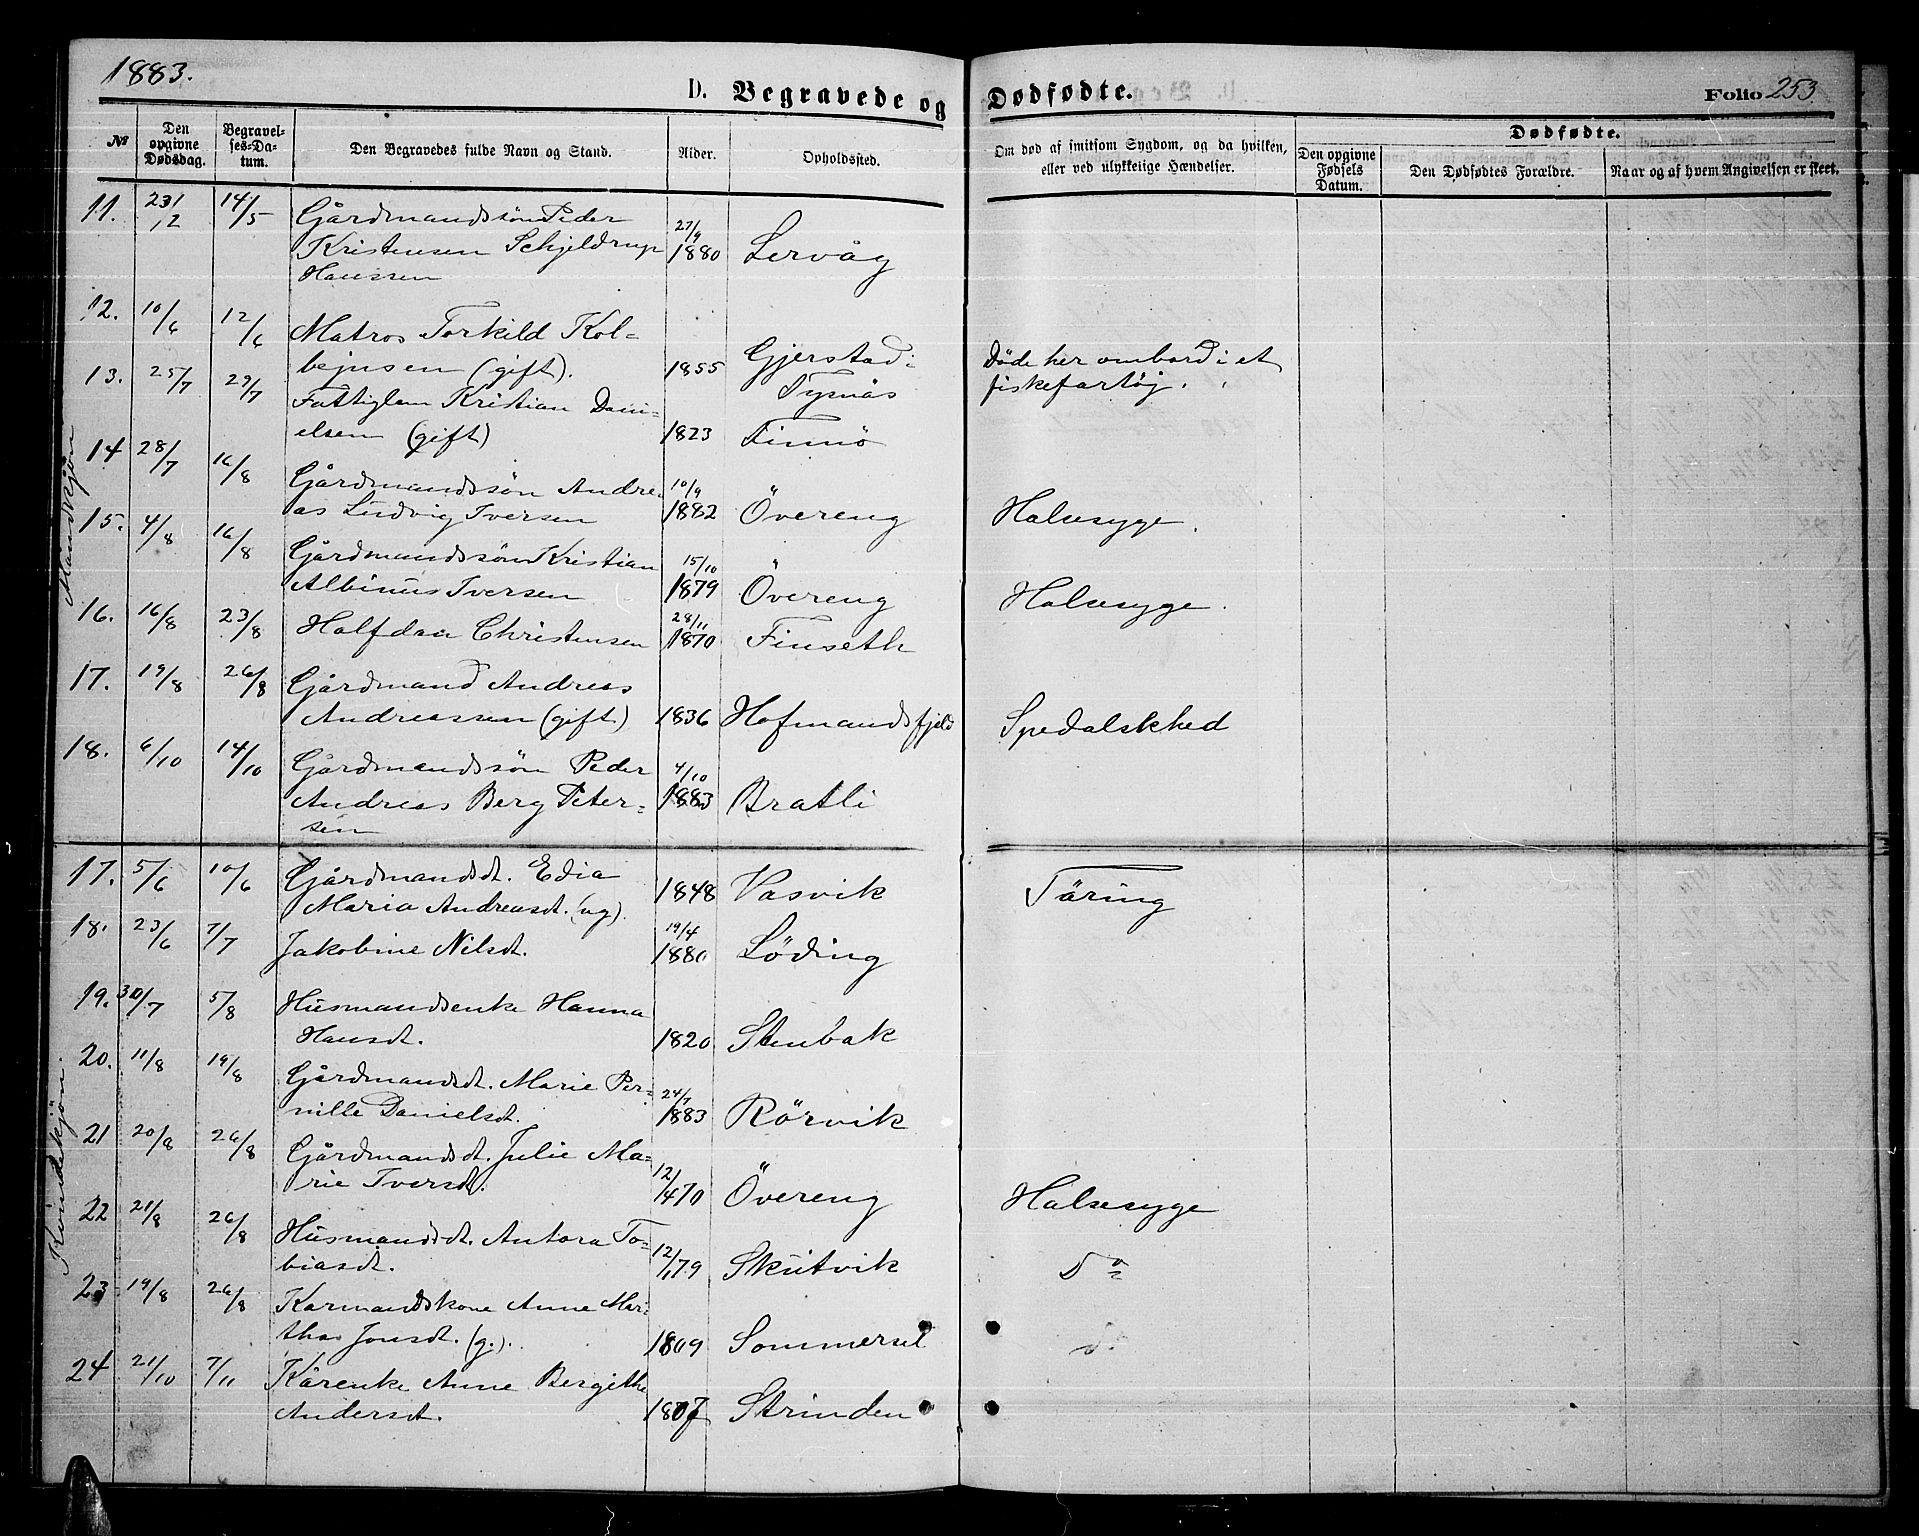 1883.
D. Begravede og Dødfødte.
Folio 253
№
Den opgivne Dødsdag.
Begravelses-Datum.
Den Begravedes fulde Navn og Stand.
Alder.
Opholdssted.
Om død af smitsom Sygdom, og da hvilken, eller ved ulykkelige Hændelser.
Dødfødte.
Den opgivne Fødsels Datum.
Den Dødfødtes Forældre.
Naar og af hvem Angivelsen er skeet.
Mandkjøn
11. 14/5 Gårdmandssøn Peder
Kristensen Schjeldrup 27/9 1880 Lervåg
Hanssen
12. 10/6 12/6 Matros Torkild Kol-
bejnsen (gift). 1855 Gjerstad i Tysnäs Døde her ombord i et
fiskefartøj.
13. 25/7 29/7 Fattiglem Kristian Dani-
elsen (gift) 1823 Finnö
14 28/7 16/8 Gårdmandssøn Andre-
as Ludvig Iversen 10/9 1882 Övereng Halsesyge.
15. 4/8 16/8 Gårdmandssøn Kristian
Albinus Iversen 15/10 1879 Övereng Halsesyge.
16. 16/8 23/8 Halfdan Christensen 28/11 1870 Finseth
17. 19/8 26/8 Gårdmand Andreas
Andreassen (gift) 1836 Hofmandsfjeld Spedalskhed
18. 6/10 14/10 Gårdmandssøn Peder
Andreas Berg Peter- 4/10 1883 Bratli
sen
Kvindekjön.
17. 5/6 10/6 Gårdmandsdt. Edia
Maria Andreasdt. (ug). 1848 Vasvik Täring
18. 23/6 7/7 Jakobine Nilsdt. 19/4 1880 Löding
19. 30/7 5/8 Husmandsenke Hanna
Hansdt. 1820 Stenbak
20. 11/8 19/8 Gårdmandsdt. Marie Per-
nille Danielsdt. 24/7 1883 Rörvik
21 20/8 26/8 Gårdmandsdt. Julie Ma-
rie Iversdt. 12/4 70 Övereng Halsesyge
22 21/8 26/8 Husmandsdt. Antora To-
biasdt. 12/1 79 Skutvik Do
23 19/8 26/8 Karmandskone Anne Mar-
tha Jonsdt. (g.). 1809 Sommerset d.
24 21/10 7/11 Kårenke Anne Bergithe
Andersdt. 1807 Strinden